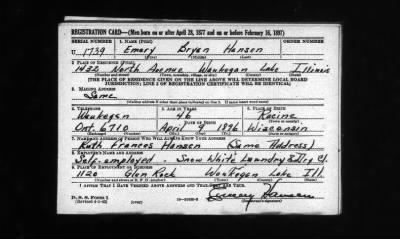 REGISTRATION CARD—(Men born on or after April 28, 1877 and on or before February 16, 1897)
SERIAL NUMBER 1. NAME (Print) ORDER NUMBER
U 1739 Emory Bryan Hansen
2. PLACE OF RESIDENCE (Print)
1432 North Avenue Waukegan Lake Illinois
(Number and street) (Town, township, village, or city) (County) (State)
[THE PLACE OF RESIDENCE GIVEN ON THE LINE ABOVE WILL DETERMINE LOCAL BOARD
JURISDICTION; LINE 2 OF REGISTRATION CERTIFICATE WILL BE IDENTICAL]
3. MAILING ADDRESS
Same
[Mailing address if other than place indicated on line 2. If same insert word same]
4. TELEPHONE 5. AGE IN YEARS 6. PLACE OF BIRTH
Waukegan 46 Racine
DATE OF BIRTH (Town or county)
Ont. 6710 April 9 1896 Wisconsin
7. NAME AND ADDRESS OF PERSON WHO WILL ALWAYS KNOW YOUR ADDRESS
Ruth Frances Hansen (Same Address)
8. EMPLOYER'S NAME AND ADDRESS
Self-employed - Snow White Laundry & Dry Cl.
9. PLACE OF EMPLOYMENT OR BUSINESS
1120 Glen Rock Waukegan Lake Ill.
(Number and street or R. F. D. number) (Town) (County) (State)
I AFFIRM THAT I HAVE VERIFIED ABOVE ANSWERS AND THAT THEY ARE TRUE.
D. S. S. Form 1
Emory Hansen
(Registrant's signature)